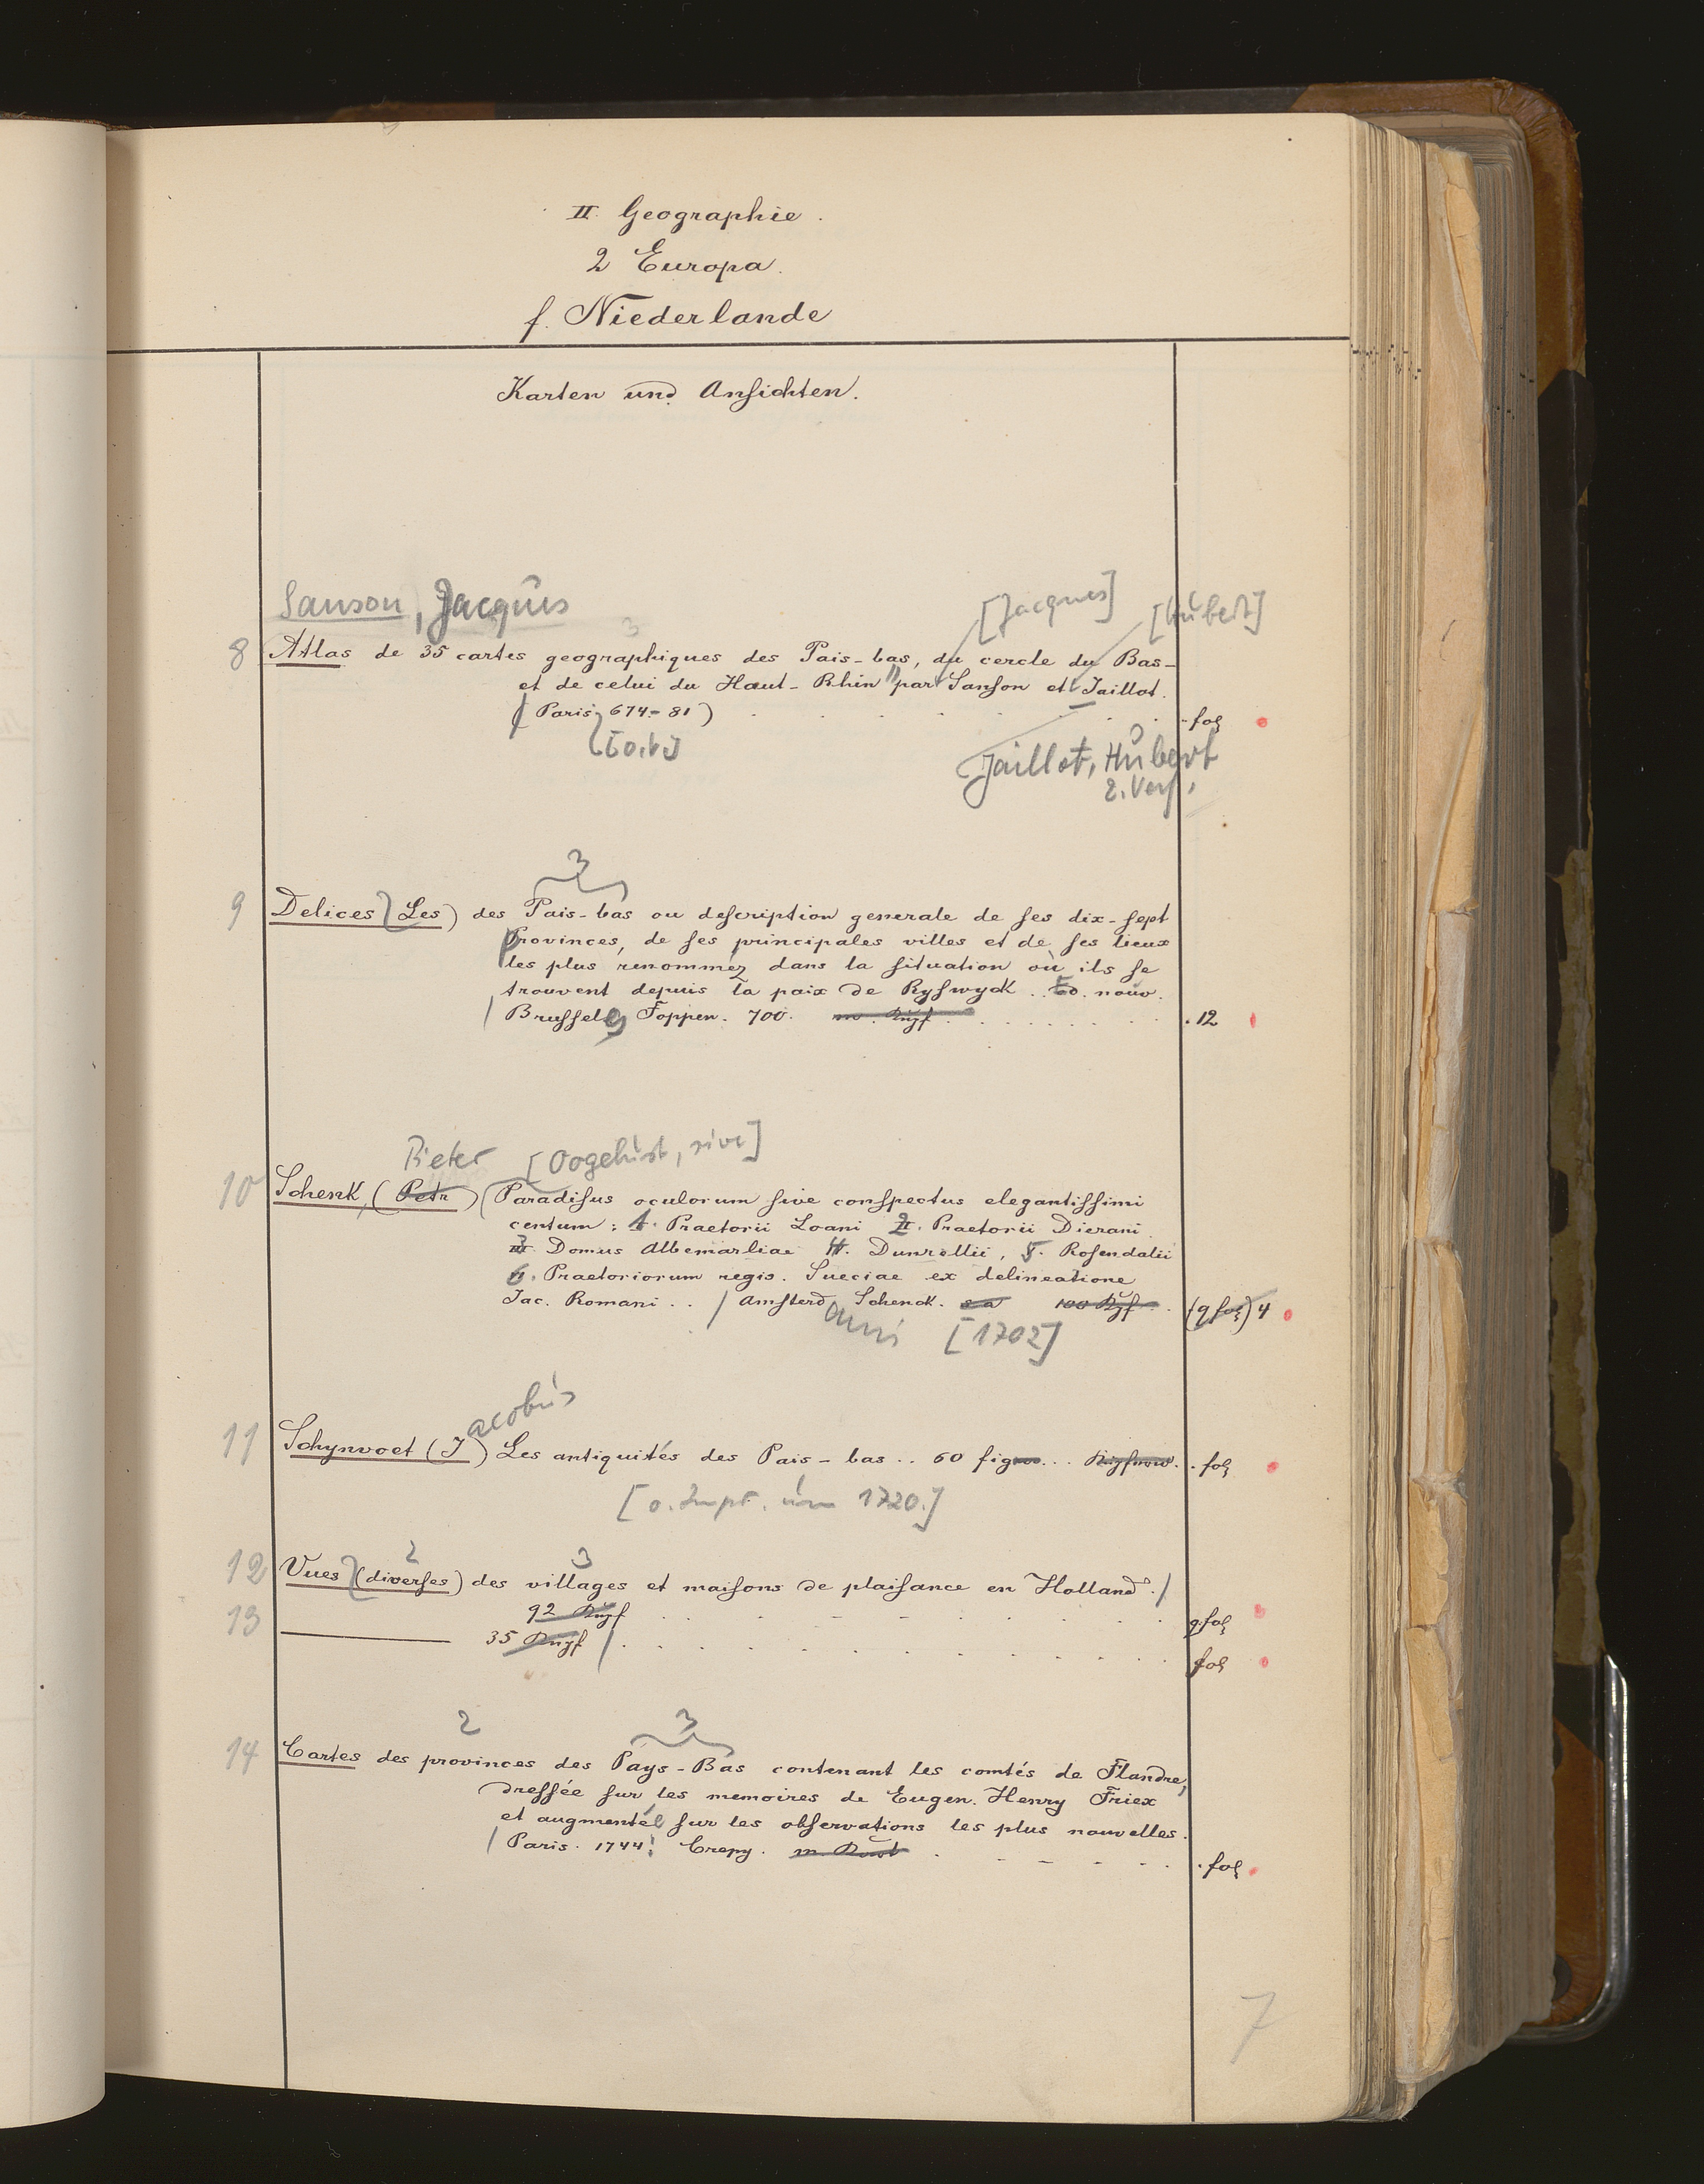 II. Geographie.
2 Europa.
f. Niederlande
Karten und Ansichten.
Sanson, Jacques
[Jacques] [Hubert]
3
8 Atlas de 35 cartes geographiques des Pais-bas, du cercle du Bas-
et de celui du Haut-Rhin par Sanson et Jaillot.
(Paris 674-81) . . . . . . fol
Jaillot, Hubert
2. Verf.
3
9 Delices (Les) des Pais-bas ou description generale de ses dix-sept
Provinces, de ses principales villes et de ses lieux
les plus renommez dans la situation où ils se
trouvent depuis la paix de Ryswyck .. Ed. nouv.
/ Brussel, Foppen. 700. m. Kupf . . . . . . . . 12
Pieter [Oogelust, sive]
10 Schenk, (Petr) (Paradisus oculorum sive conspectus elegantissimi
centum: 1. Praetorii Loani 2. Praetorii Dierani.
3. Domus Albemarliae 4. Dunrellii, 5. Rosendalii
6. Praetoriorum regis. Sueciae ex delineatione
Jac. Romani .. / Amsterd Schenck. s a 100 Kpf . (q fol) 4
[1702]
acobus
11 Schynvoet (J) Les antiquités des Pais-bas .. 60 fig ... . fol
[o. Impr. um 1720.]
2 3
12 Vues (diverses) des villages et maisons de plaisance en Holland. /
92 Kupf . . . . . . . . q. fol
13 35 Kupf / . . . . . . . . . . . fol
2 3
14 Cartes des provinces des Pays-Bas contenant les comtés de Flandre,
dressée sur les memoires de Eugen. Henry Friex
et augmenté sur les observations les plus nouvelles.
/ Paris. 1744. Crepy. . - - - . . fol
7